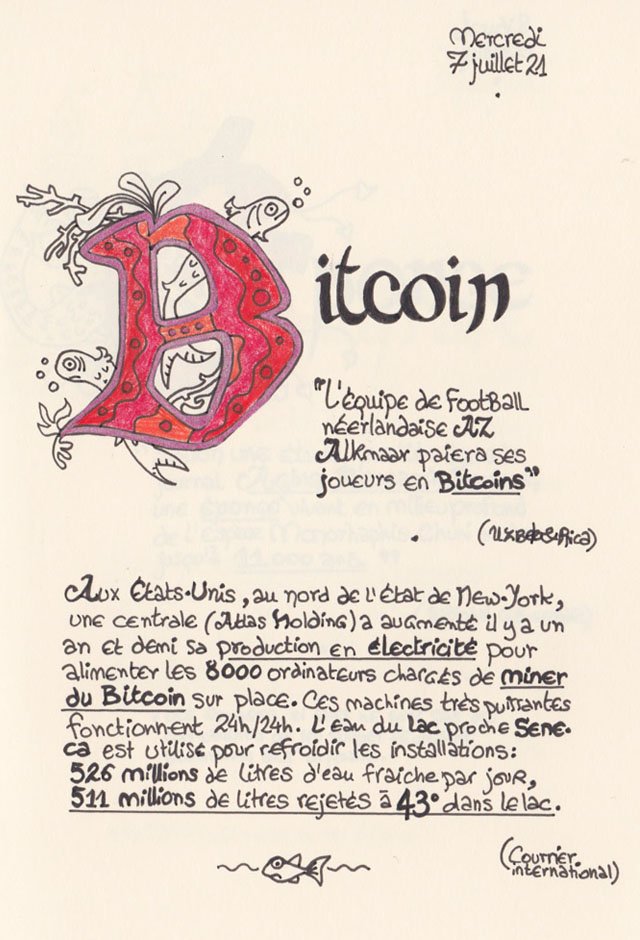 Mercredi
7 juillet 21
Bitcoin
"L'équipe de football
néerlandaise AZ
Alkmaar paiera ses
joueurs en Bitcoins"
Aux États-Unis, au nord de l'état de New-York,
une centrale (Atlas Holding) a augmenté il y a un
an et demi sa production en électricité pour
alimenter les 8000 ordinateurs chargés de miner
du Bitcoin sur place. Ces machines très puissantes
fonctionnent 24h/24h. L'eau du lac proche Sene-
ca est utilisé pour refroidir les installations:
526 millions de litres d'eau fraiche par jour,
511 millions de litres rejetés à 43° dans le lac.
(Courrier
international)